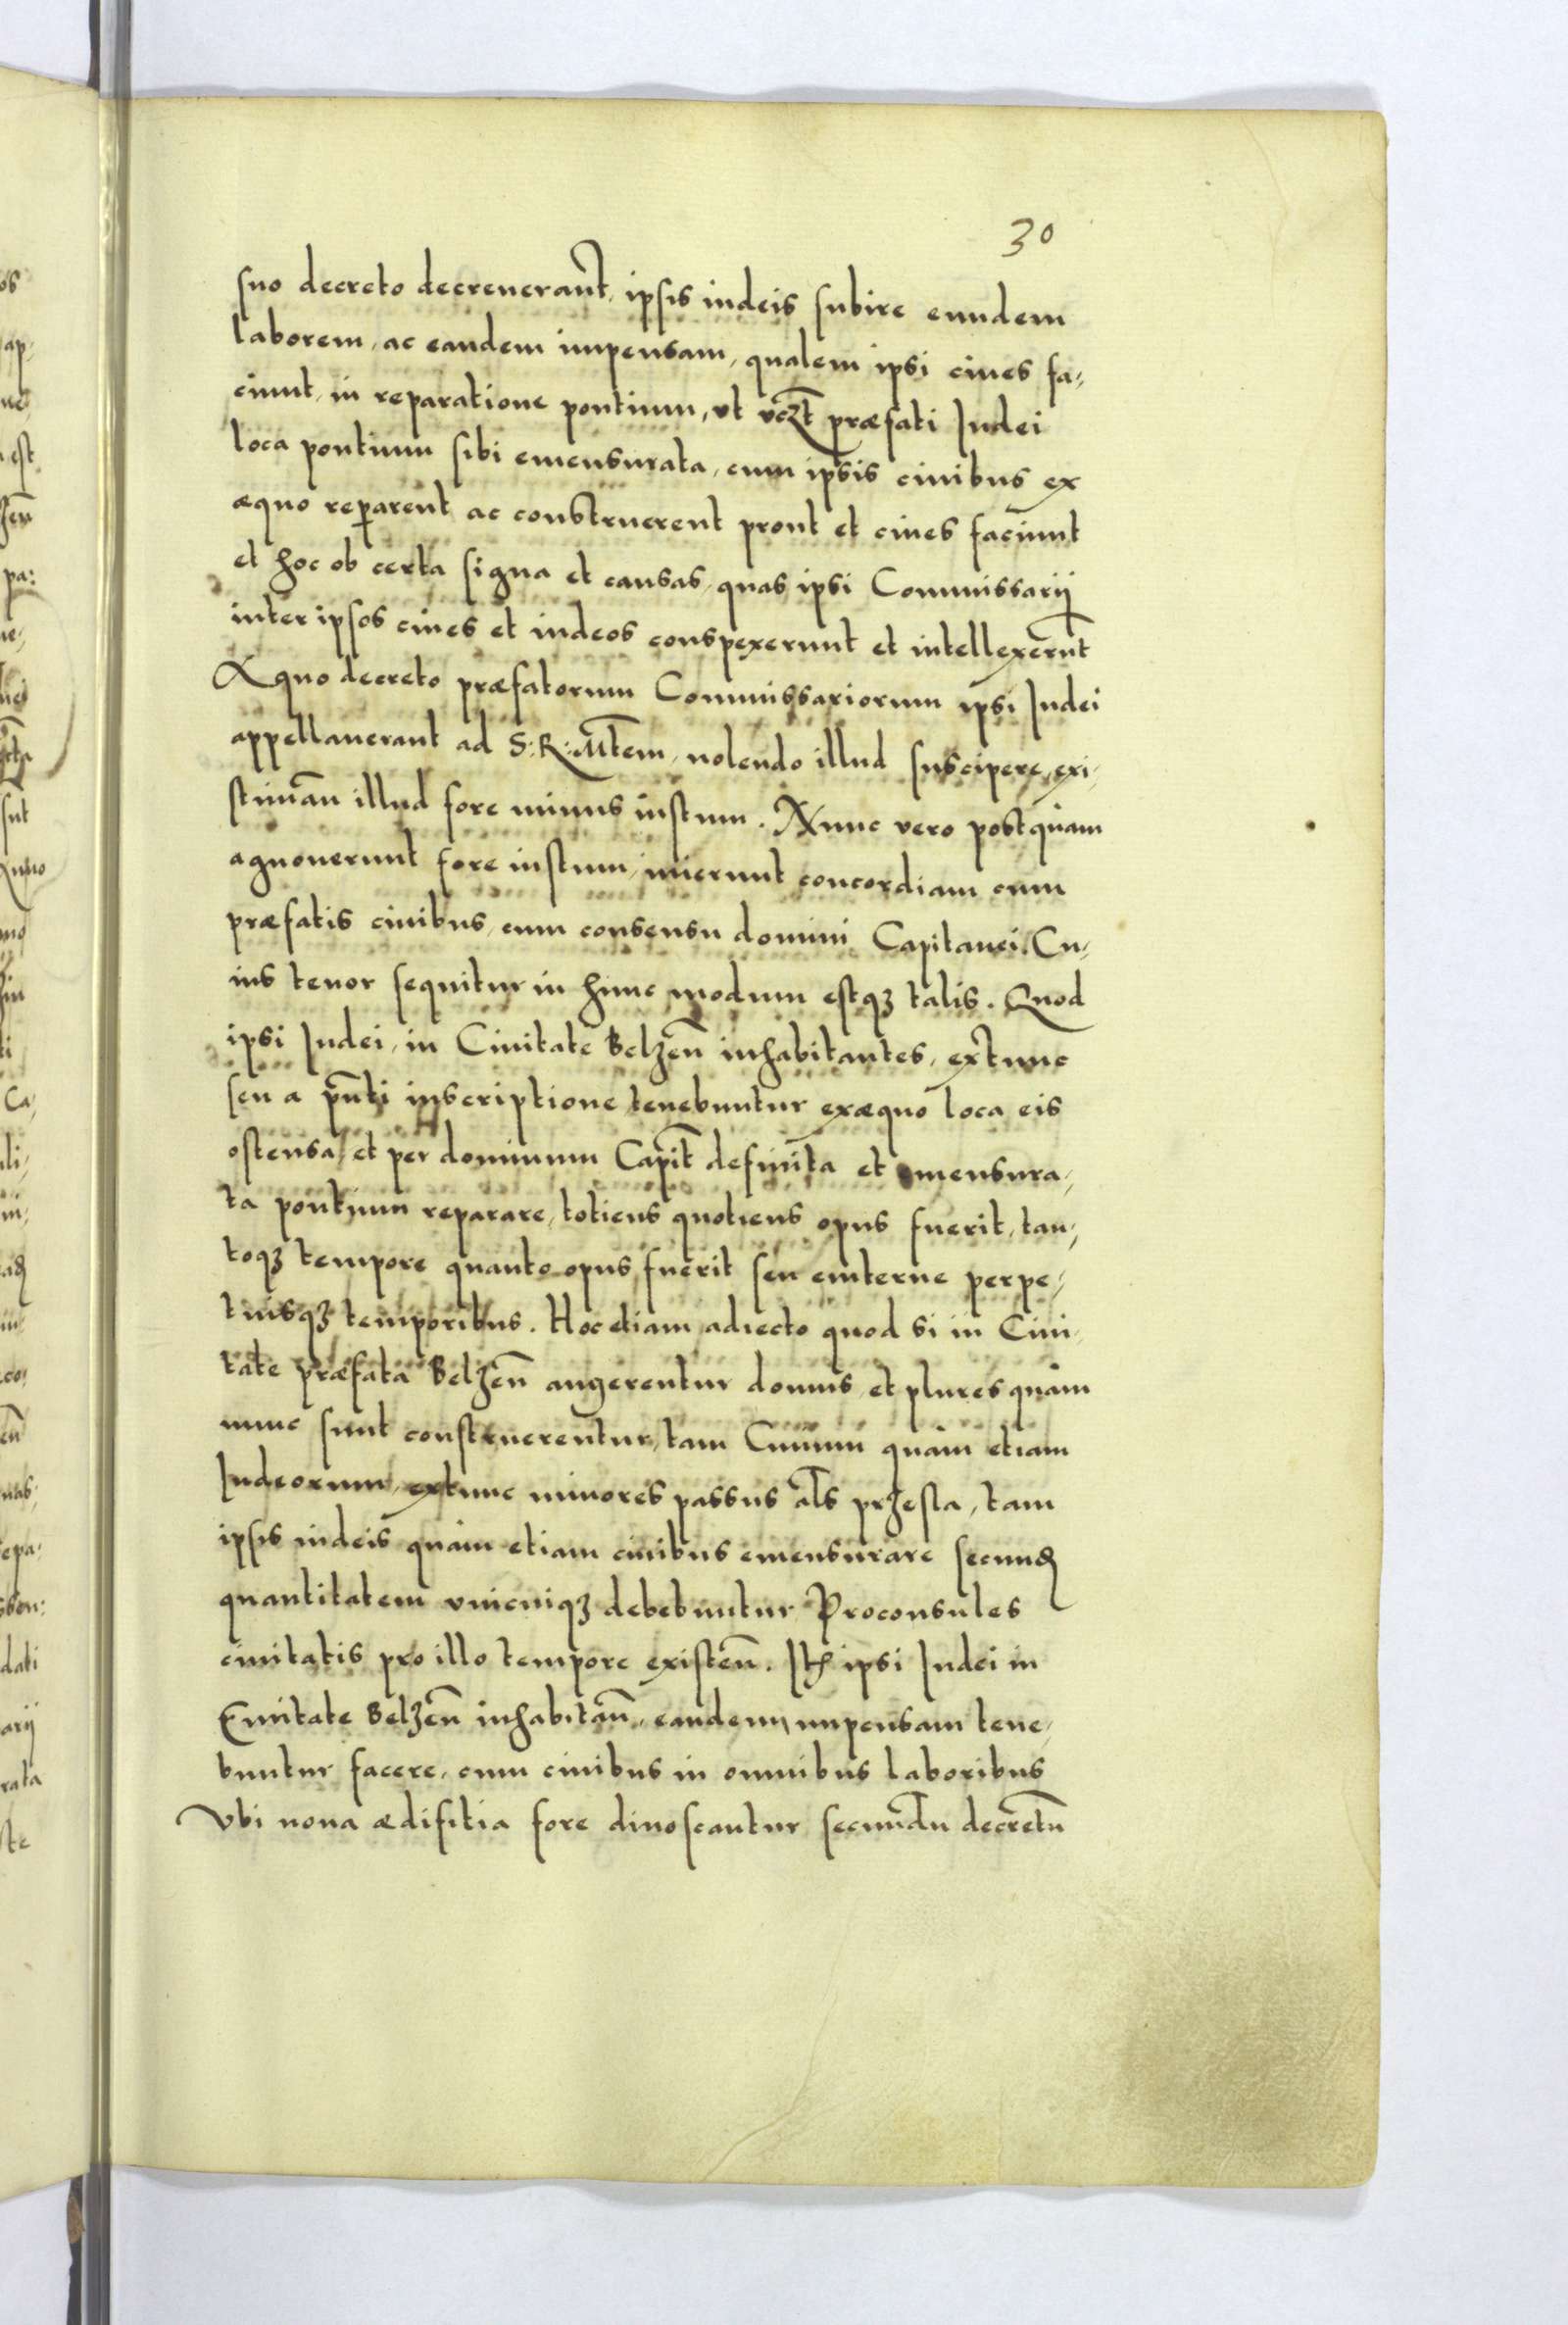 30
suo decreto decreuerant, ipsis iudeis subire eundem
laborem, ac eandem impensam, qualem ipsi ciues fa,
ciunt, in reparatione pontium, vt vczt præfati Iudei
loca pontium sibi emensurata, cum ipsis ciuibus ex
æquo repararent ac construerent prout et ciues faciunt
et hoc ob certa signa et causas, quas ipsi Commissarij
inter ipsos ciues et iudeos conspexerunt et intellexerunt
A quo decreto præfatorum Commissariorum ipsi Iudei
appellauerant ad S: R: Mtem, nolendo illud suscipere, exi,
stiman̄ illud fore minus iustum. Nunc vero postquam
agnouerunt fore iustum, inierunt concordiam cum
præfatis ciuibus, cum consensu domini Capitanei. Cu,
ius tenor sequitur in hunc modum estqȝ talis. Quod
ipsi Iudei, in Ciuitate Belzen̄ inhabitantes, extunc
seu a pn̄ti inscriptione tenebuntur exæquo loca eis
ostensa, et per dominum Capit̄ definita et emensura,
ta pontium reparare, totiens quotiens opus fuerit, tan,
toqȝ tempore quanto opus fuerit seu euiterne perpe,
tuisqȝ temporibus. Hoc etiam adiecto quod si in Ciui,
tate præfata Belzen̄ augerentur domus, et plures quàm
nunc sunt construerentur, tam Ciuium quàm etiam
Iudeorum, extunc minores passus al̄s przesla, tam
ipsis iudeis quàm etiam ciuibus emensurare secund
quantitatem vnicuiqȝ debebuntur Proconsules
ciuitatis pro illo tempore existen̄. Itȝ ipsi Iudei in
Ciuitate Belzen̄ inhabitan̄, eandem impensam tene,
buntur facere, cum ciuibus in omnibus laboribus
Vbi noua ædifitia fore dinoscantur secundū decretū